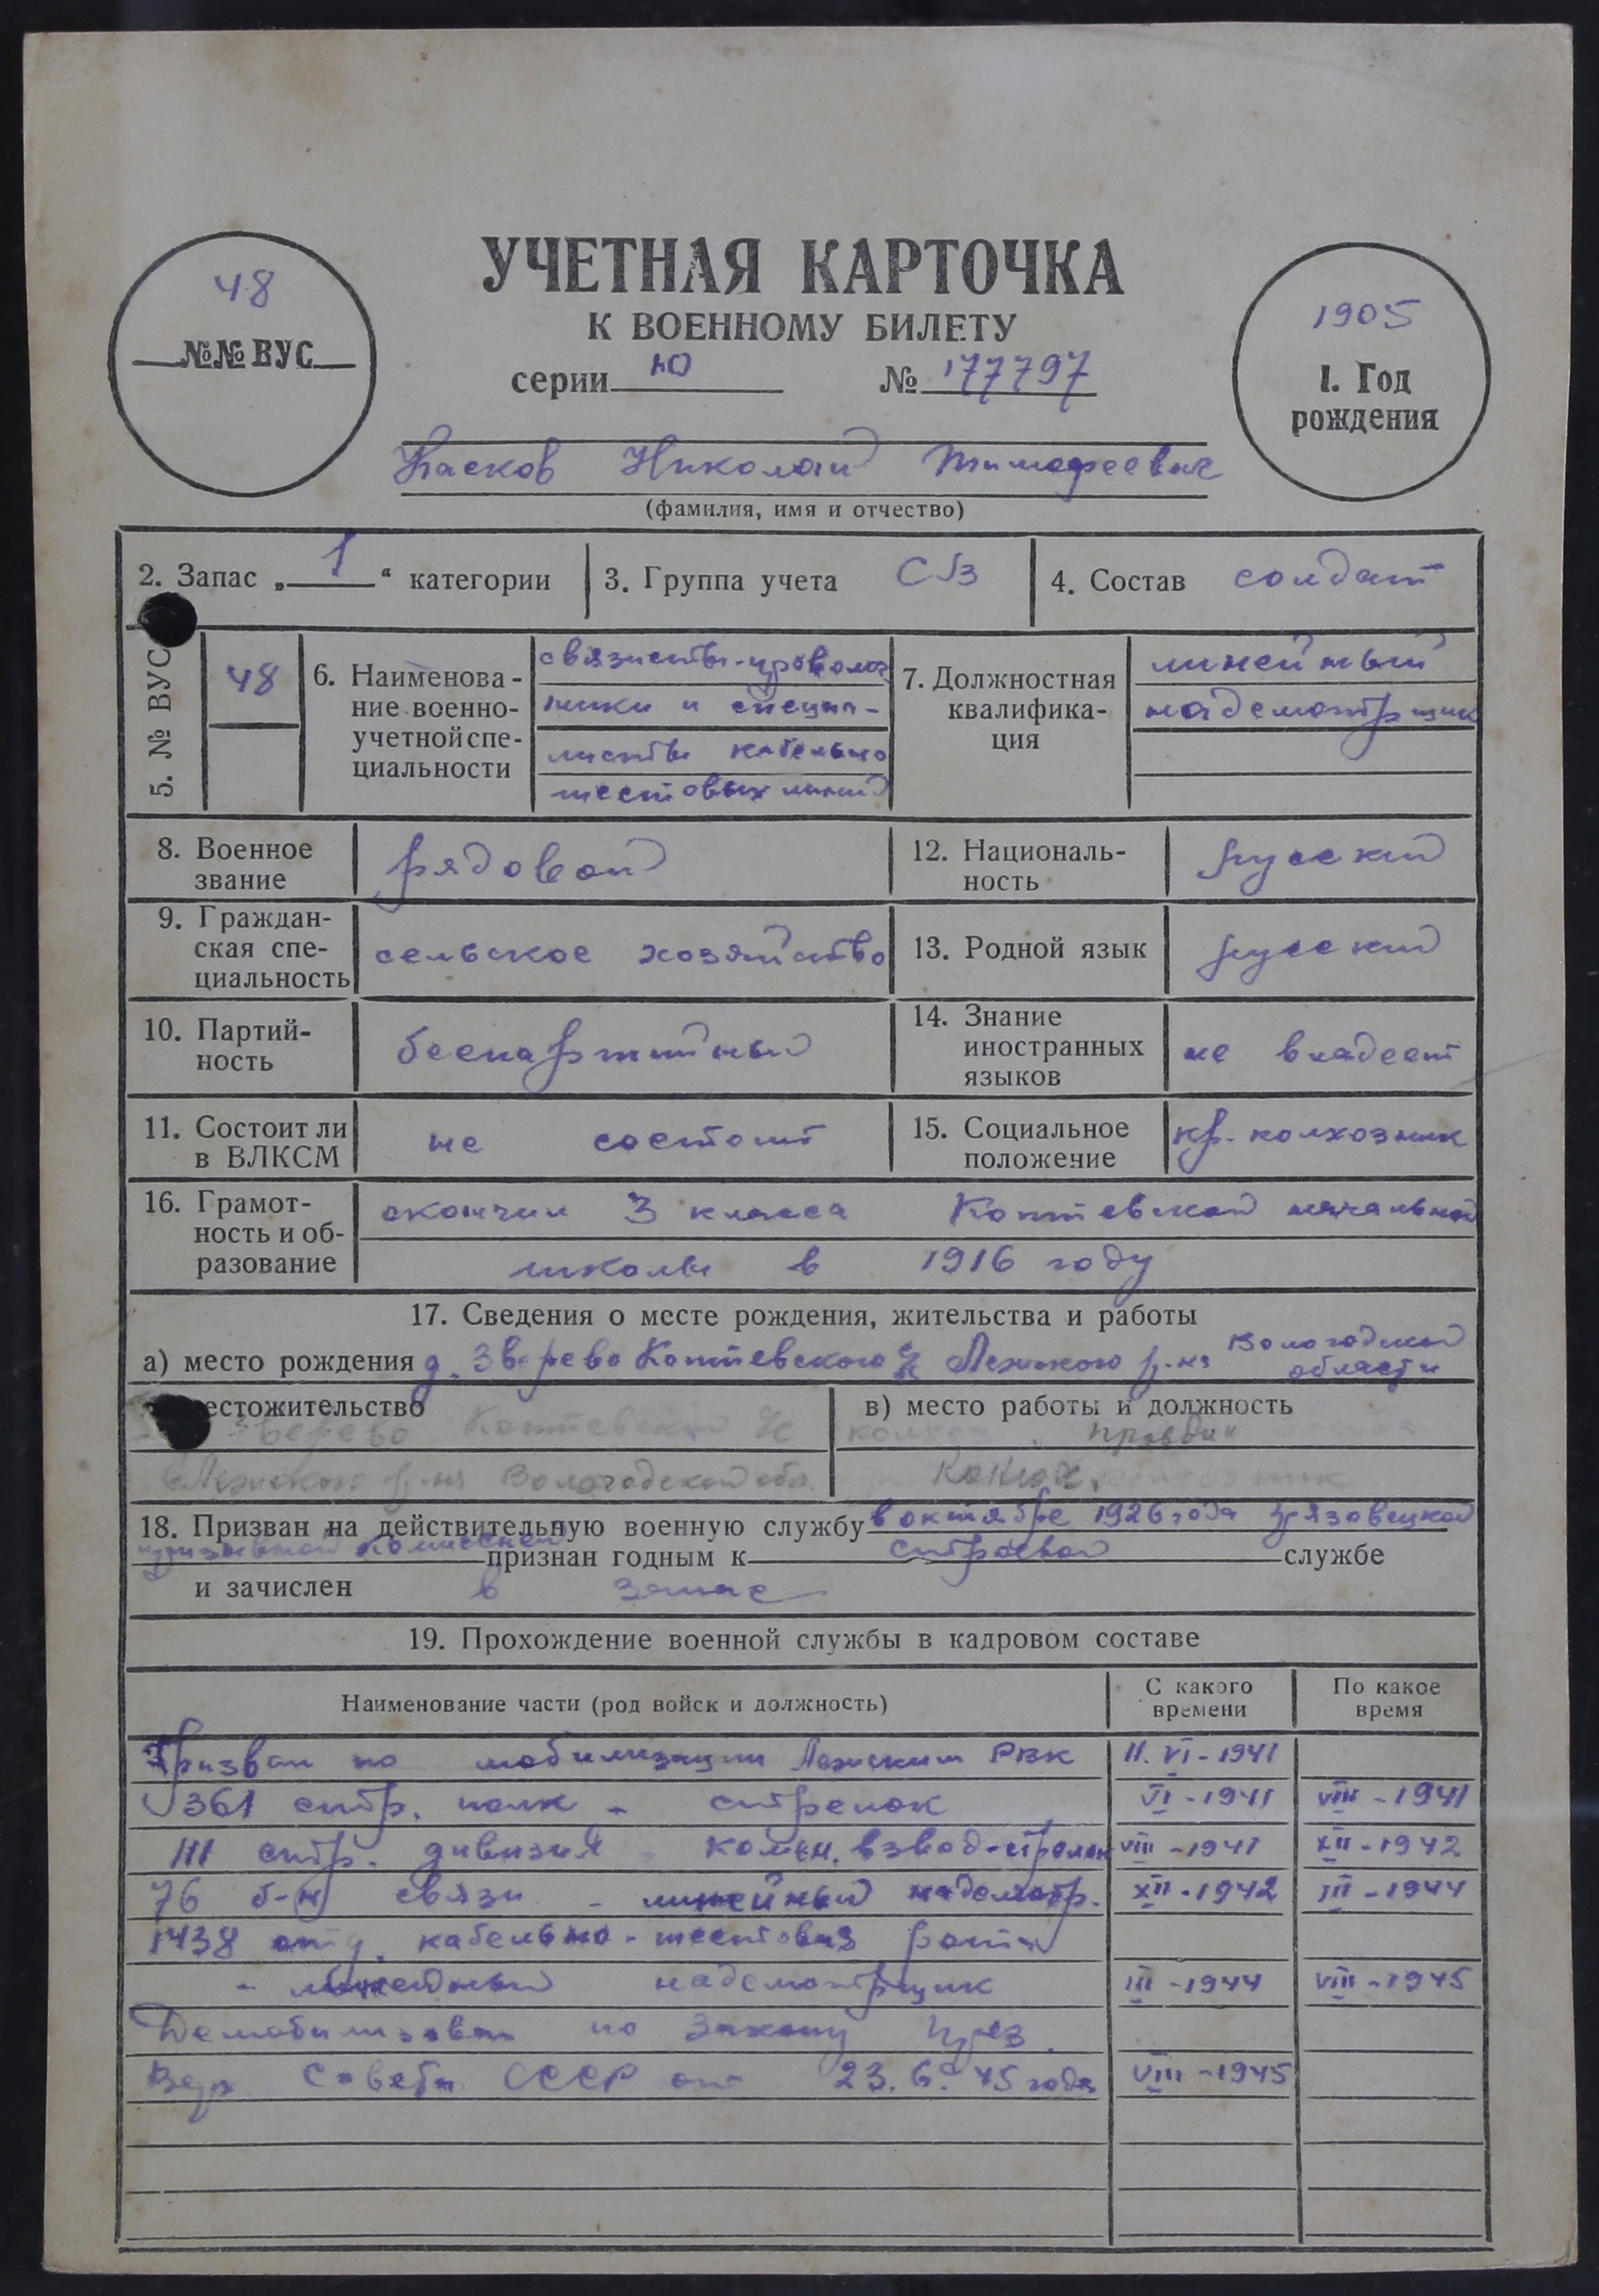 УЧЕТНАЯ КАРТОЧКА
К ВОЕННОМУ БИЛЕТУ
серии Ю № 177797
48
№№ ВУС
1905
1. Год
рождения
Николай Тимофеевич
(фамилия, имя и отчество)
2. Запас „1“ категории
3. Группа учета СВ
4. Состав солдат
5. № ВУС
48
6. Наименова-
ние военно-
учетной спе-
циальности
связисты-проволоч
ники и специа-
листы кабельно
шестовых линий
7. Должностная
квалифика-
ция
линейный
надсмотрщик
8. Военное
звание
рядовой
12. Националь-
ность
русский
9. Граждан-
ская спе-
циальность
сельское хозяйство
13. Родной язык
русский
10. Партий-
ность
беспартийный
14. Знание
иностранных
языков
не владеет
11. Состоит ли
в ВЛКСМ
не состоит
15. Социальное
положение
кр. колхозник
16. Грамот-
ность и об-
разование
окончил 3 класса Коптевской начальной
школы в 1916 году
17. Сведения о месте рождения, жительства и работы
а) место рождения д. Зверево Коптевского с/с Лежского р-на Вологодской
области
естожительство
Зверево Коптевского с/с
Лежского р-на Вологодской обл.
в) место работы и должность
колхоз "Правда"
Конюх.
18. Призван на действительную военную службу в октябре 1926 года Грязовецкой
призывной комиссией признан годным к строевой службе
и зачислен в запас
19. Прохождение военной службы в кадровом составе
Наименование части (род войск и должность)
С какого
времени
По какое
время
Призван по мобилизации Лежским РВК 11. VI - 1941
361 стр. полк - стрелок VI - 1941 VIII - 1941
111 стр. дивизия - комен. взвод - стрелок VIII - 1941 XII - 1942
76 б-н связи - линейный надсмотр. XII - 1942 III - 1944
1438 отд. кабельно - шестовая рота
- линейный надсмотрщик III - 1944 VIII - 1945
Демобилизован по Закону През.
Верх Совета СССР от 23. 6. 45 года VIII - 1945